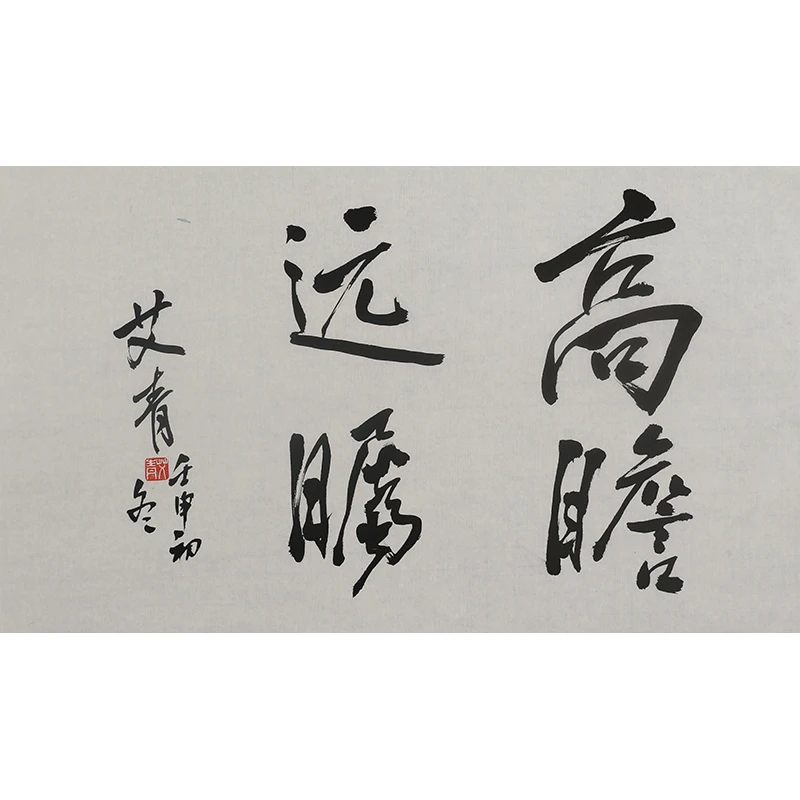 高瞻
远瞩
艾青
壬申初
冬
艾青